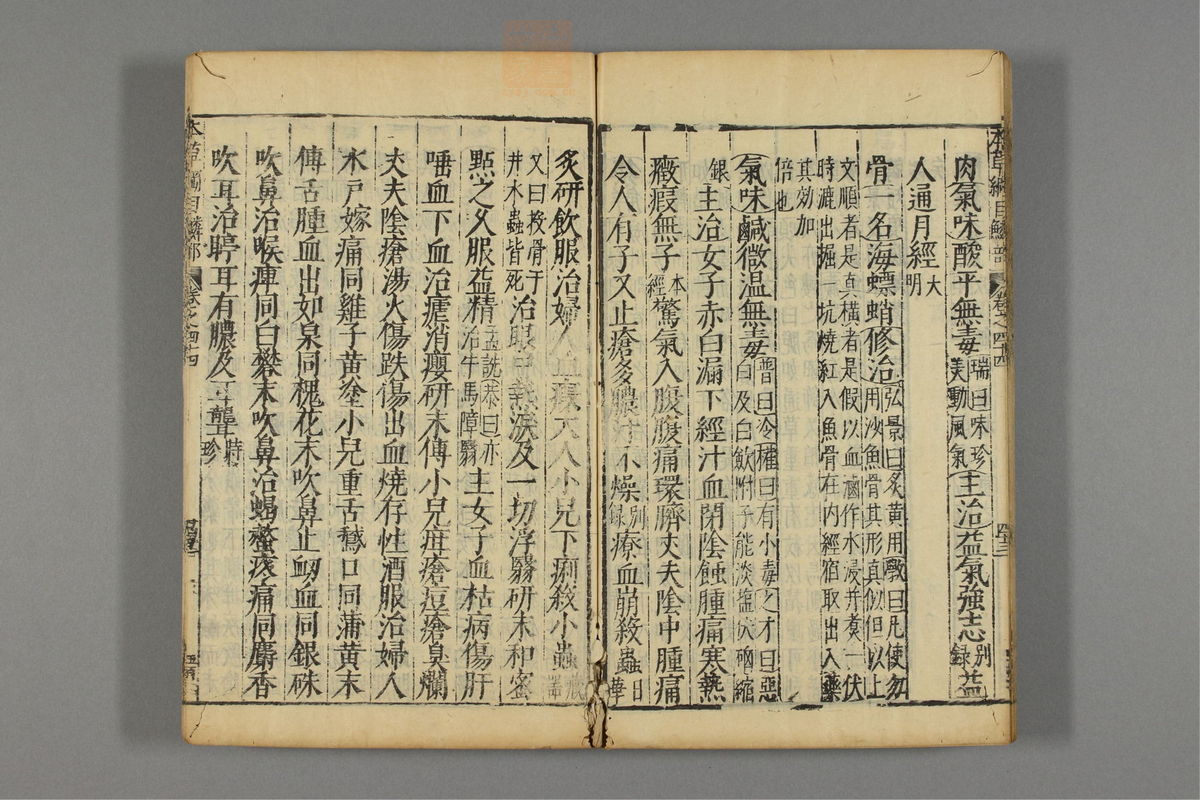 肉氣味酸平無毒瑞曰味珍美動風氣主治益氣強志別錄益
人通月經大明
骨一名海螵蛸修治弘景曰炙黃用斅曰凡使勿用沙魚骨其形真似但以上
文順者是真橫者是假以血鹵作水浸并煮一伏時漉出掘一坑燒紅入魚骨在內經宿取出入藥
其効加倍也
氣味鹹微溫無毒普曰冷權曰有小毒之才曰惡白及白歛附子能淡鹽伏硇縮
銀主治女子赤白漏下經汁血閉陰蝕腫痛寒熱
癥瘕無子本經驚氣入腹腹痛環臍丈夫陰中腫痛
令人有子又止瘡多膿汁不燥別錄療血崩殺蟲日華
炙研飲服治婦人血瘕大人小兒下痢殺小蟲藏器
又曰投骨于井水蟲皆死治眼中熱淚及一切浮翳研末和蜜
點之久服益精孟詵恭曰亦治牛馬障翳主女子血枯病傷肝
唾血下血治瘧消癭研末傅小兒疳瘡痘瘡臭爛
丈夫陰瘡湯火傷跌傷出血燒存性酒服治婦人
水戶嫁痛同雞子黃塗小兒重舌鵞口同蒲黃末
傅舌腫血出如泉同槐花末吹鼻止衂血同銀硃
吹鼻治喉痺同白礬末吹鼻治蝎螫疼痛同麝香
吹耳治聤耳有膿及耳聾時珍
本草綱目鱗部
卷之四十四